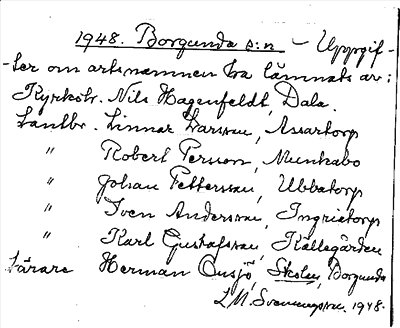 1948. Borgunda s:n – Uppgif-
-ter om ortsnamnen ha lämnats av:
Kyrkvkt. Nils Hagenfeldt, Dala.
Lantbr. Linnar Larsson, Assartorp
" Robert Persson, Munkabo
" Johan Pettersson, Ubbatorp
" Sven Andersson, Ingrietorp
" Karl Gustafsson, Källegården
Lärare Herman Onsjö, Skolan, Borgunda
L. M. Svenungsson. 1948.